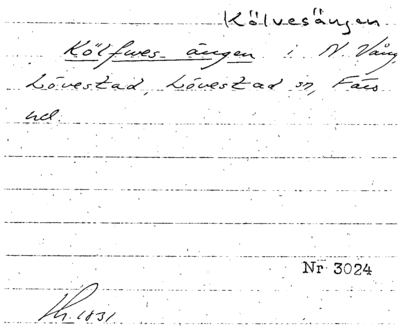 Kölvesängen
Kölfwes ängen i N. Vång,
Lövestad, Lövestad sn, Färs
hd.
Nr 3024
Lh. 1831